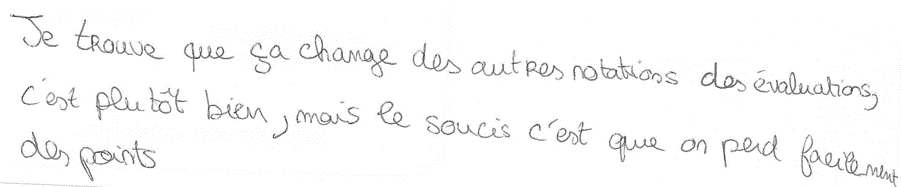 Je trouve que ça change des autres notations des évaluations,
c'est plutôt bien, mais le soucis c'est que on perd facilement
des points